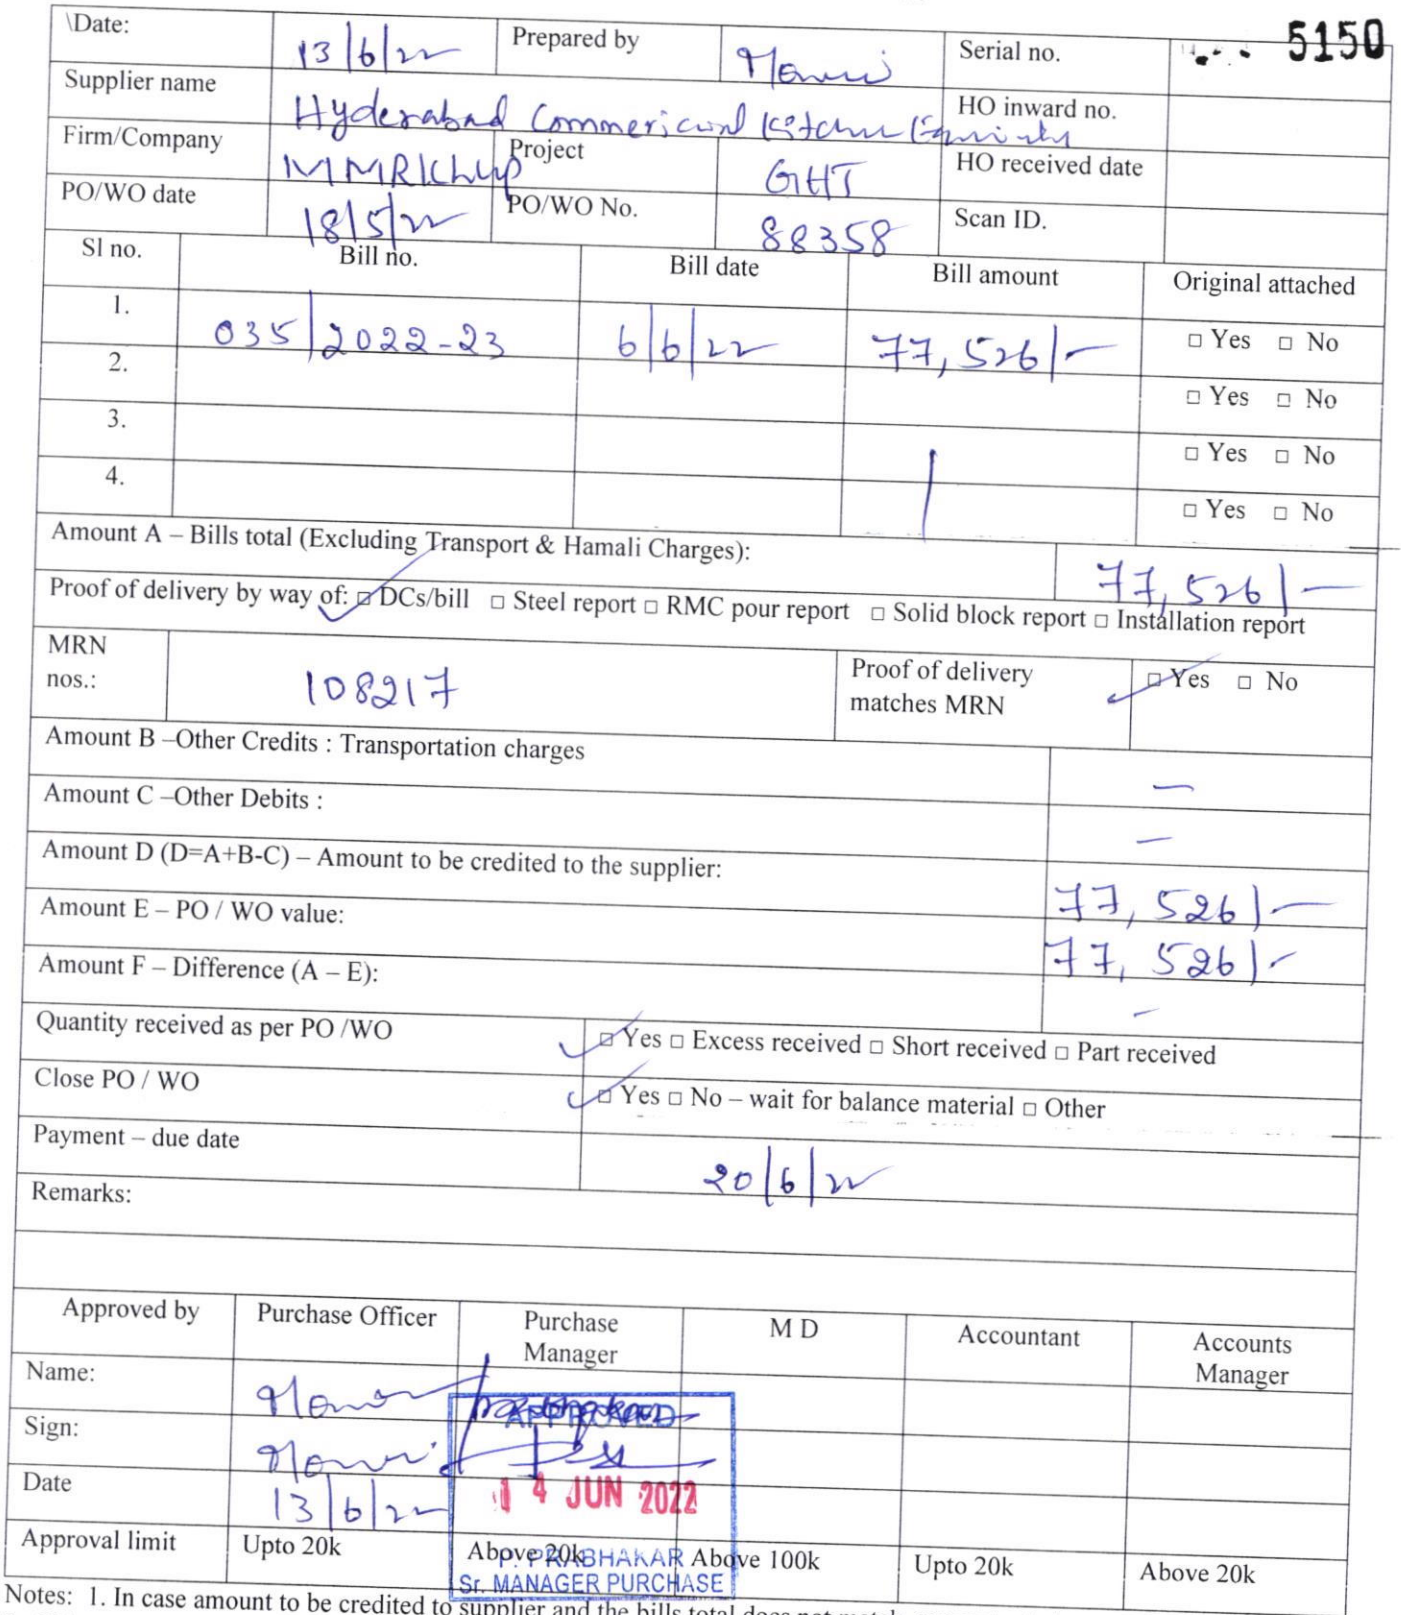 \Date: 13/6/22 Prepared by Serial no. 5150
Supplier name Hyderabad Commerical Kitchen HO inward no.
Firm/Company MMRKLLP Project GHT HO received date
PO/WO date 18/5/22 PO/WO No. 88358 Scan ID.
Sl no. Bill no. Bill date Bill amount Original attached
1. 035/2022-23 6/6/22 77,526/- □ Yes □ No
2. □ Yes □ No
3. □ Yes □ No
4. □ Yes □ No
Amount A – Bills total (Excluding Transport & Hamali Charges): 77,526/-
Proof of delivery by way of: □ DCs/bill □ Steel report □ RMC pour report □ Solid block report □ Installation report
MRN nos.: 108217 Proof of delivery matches MRN □ Yes □ No
Amount B –Other Credits : Transportation charges -
Amount C –Other Debits : -
Amount D (D=A+B-C) – Amount to be credited to the supplier: 77,526/-
Amount E – PO / WO value: 77,526/-
Amount F – Difference (A – E): -
Quantity received as per PO /WO □ Yes □ Excess received □ Short received □ Part received
Close PO / WO □ Yes □ No – wait for balance material □ Other
Payment – due date 20/6/22
Remarks:
Approved by Purchase Officer Purchase Manager M D Accountant Accounts Manager
Name: APPROVED
Sign:
Date 13/6/22 14 JUN 2022
Approval limit Upto 20k Above 20k Above 100k Upto 20k Above 20k
P. PRABHAKAR
Sr. MANAGER PURCHASE
Notes: 1. In case amount to be credited to supplier and the bills total does not match